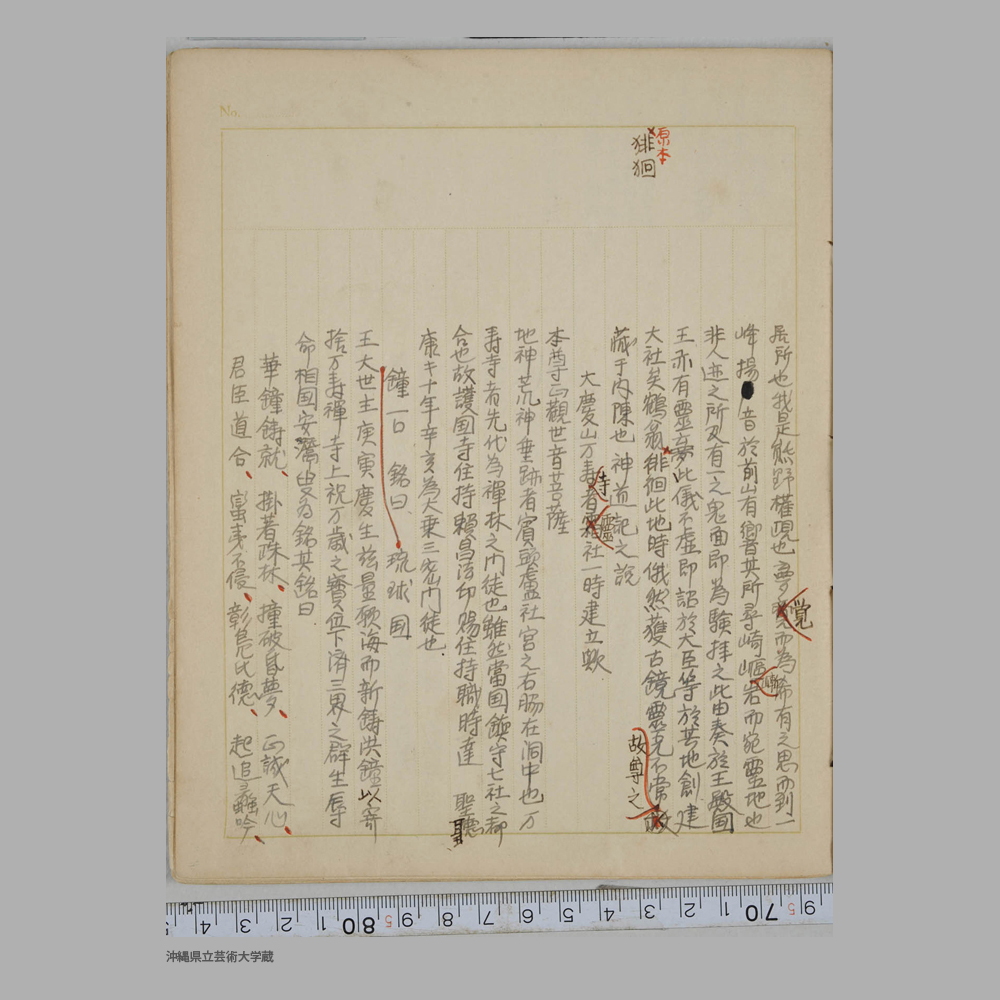 No.
原本
徘徊
居所也我是熊野權現也夢覚而為希有之思而到一
峰揚●音於前山有響其所尋崎嶇岩而宛靈地也
非人迹之所及有一之鬼面即為験拝之此由奏於王殿国
王亦有靈夢此儀不虚即詔於大臣等於其地創建
大社矣鶴翁徘徊此地時俄然獲古鏡靈光不常故尊之
藏于内陳也 神道記之説
大慶山万壽寺者靈社一時建立歟
本尊正觀世音菩薩
地神荒神垂跡者賓頭盧社宮之右脇在洞中也万
寿寺者先代為禪林之門徒也雖然當国鎮守七社之都
合也故護国寺住持賴昌法印賜住持職時達 聖聴
康キ十年辛亥為大乗三密門徒也.
鐘一口 銘曰 琉球国
王大世主庚寅慶生茲量願海而新鋳洪鐘以寄
捨万寿禪寺上祝万歲之寶位下済三界之群生辱
命相国安潛叟為銘其銘曰.
華鐘鋳就、掛著珠林、撞破昏夢、正誠天心、
君臣道合、蛮夷不侵、彰鳧氏德、起追蠡吟、
沖縄県立芸術大学蔵